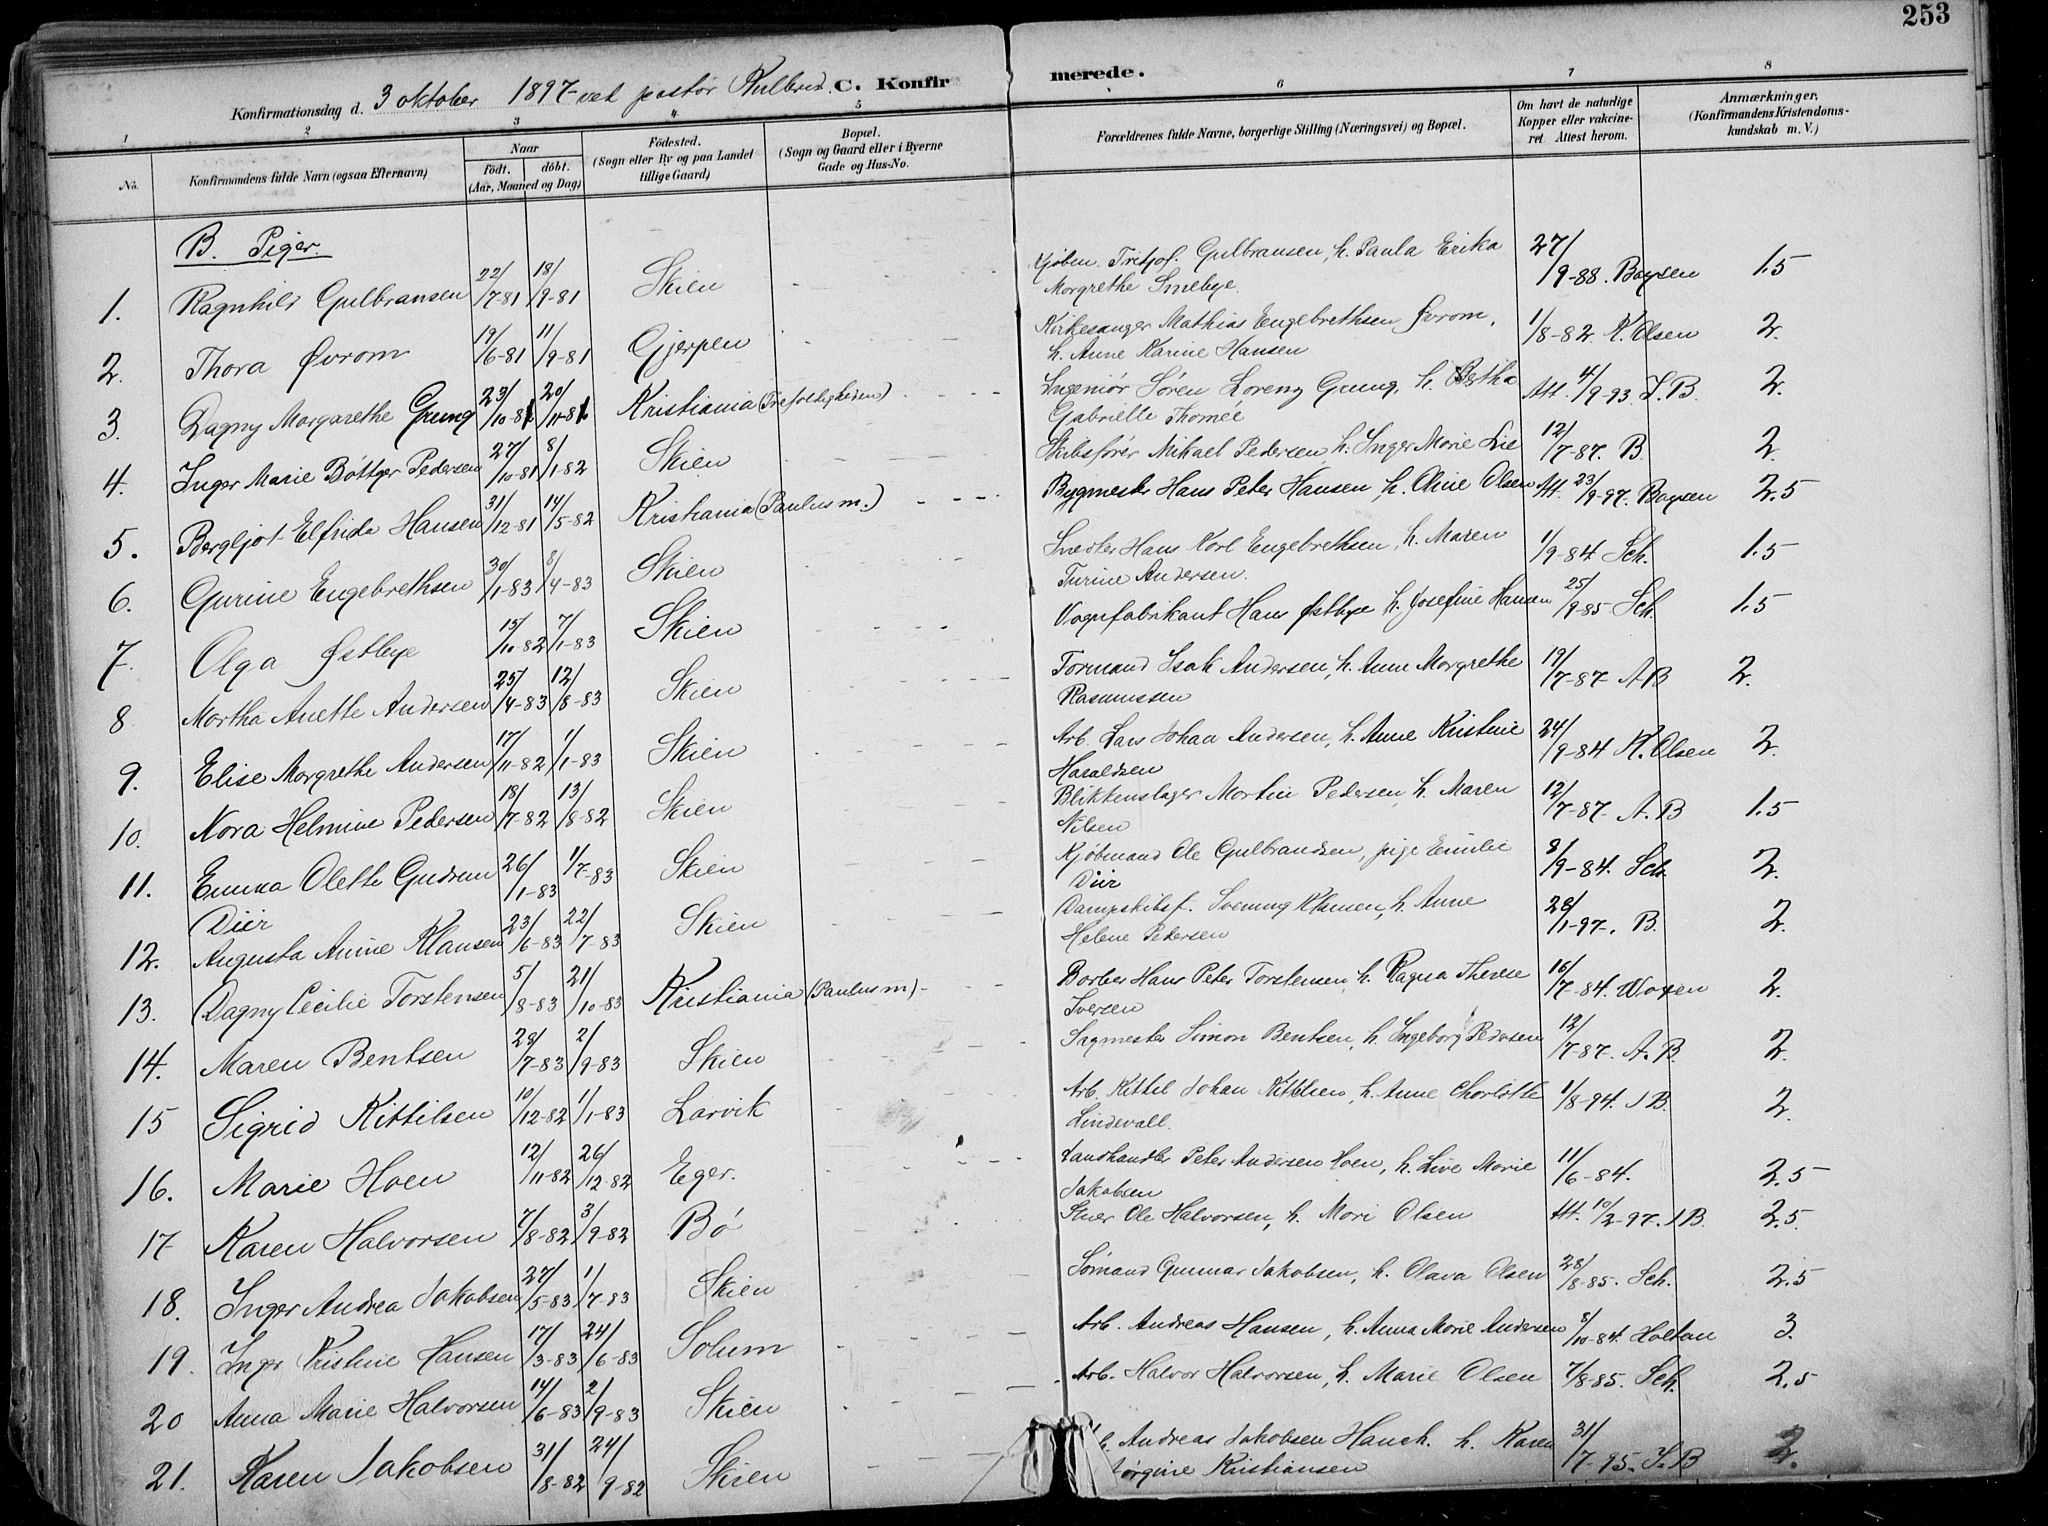 253
Konfirmationsdag d. 3 oktober 1897 ved pastor C. Konfirmerede.
1 2 3 4 5 6 7 8
No.
Konfirmandens fulde Navn (ogsaa Efternavn)
Naar
født. døbt.
(Aar, Maaned og Dag)
Födested.
(Sogn eller By og paa Landet
tillige Gaard)
Bopæl.
(Sogn og Gaard eller i Byerne
Gade og Hus-No.
Forældrenes fulde Navne, borgerlige Stilling (Næringsvei) og Bopæl.
Om havt de naturlige
Kopper eller vakcine-
ret Attest herom.
Anmærkninger.
(Konfirmandens Kristendoms-
kundskab m. V.)
B. Piger.
1. Ragnhild Gulbransen 22/7-81 18/9-81 Skien Kjøbm. Fritjof. Gulbransen, h. Paula Erika 27/9-88. Boysen 1.5
Margrethe Smebye.
2. Thora Øvrom 19/6-81 11/9-81 Gjerpen Kirkesanger Mathias Engebrethsen Øvrom, 1/8-82 K. Olsen 2.
h. Anne Karine Hansen
3. Dagny Margarethe Grung 23/10-81 20/11-81 Kristiania (Trefoldigheden) Ingeniör Sören Lorenz Grung, h. Bertha Att. 4/9-93. J.B. 2.
Gabrielle Thomée
4. Inger Marie Böttger Pedersen 27/10-81 8/1-82 Skien Skibsförer Mikael Pedersen h. Inger Marie Lie 12/7-87. B. 2
5. Bergljot Elfrida Hansen 31/12-81 14/5-82 Kristiania (Paulus m.) Bygmester Hans Peter Hansen h. Oline Olsen Att. 23/9-97. Boysen 2.5
6. Gurine Engebrethsen 30/1-83 8/4-83 Skien Snedker Hans Karl Engebrethsen, h. Maren 1/9-84 Sch. 1.5
Turine Andersen.
7. Olga Østbye 15/10-82 7/1-83 Skien Vognfabrikant Hans Østbye h. Josefine Hansen 25/9-85 Sch. 1.5
8 Martha Anette Andersen 25/4-83 12/8-83 Skien Formand Isak Andersen, h. Anne Margrethe 19/7-87 A B 2.
Rasmussen
9. Elise Margrethe Andersen 17/11-82 1/1-83 Skien Arb. Lars Johan Andersen, h. Anne Kristine 24/9-84 K. Olsen 2.
Haraldsen
10. Nora Helmine Pedersen 18/7-82 13/8-82 Skien Blikkenslager Martin Pedersen h. Maren 12/7-87. A. B 1.5
Nilsen
11. Emma Olette Gudrun 26/1-83 1/7-83 Skien Kjøbmand Ole Gulbrandsen, pige Emilie 8/9-84. Sch. 2.
Diir Diir
12. Augusta Anine Klausen 23/6-83 22/7-83 Skien Dampskibsf. Svenning Klausen, h. Anne 28/1-97. B. 2.
Helene Pedersen
13. Dagny Cecilie Torstensen 5/8-83 21/10-83 Kristiania (Paulus m) Barber Hans Peter Torstensen, h. Ragna Therese 16/7-84. Woxen 2.
Iversen
14. Maren Bentsen 28/7-83 2/9-83 Skien Sagmester Simon Bentsen, h. Ingeborg Pedersen 12/7-87. A. B. 2.
15 Sigrid Kittilsen 10/12-82 1/1-83 Larvik Arb. Kittil Johan Kittilsen, h. Anne Charlotte 1/8-94. J B. 2.
Lindevall.
16. Marie Hoen 12/11-82 26/12-82 Eger. Landhandler Peter Andersen Hoen, h. Live Marie 11/6-84. 2.5
Jakobsen
17 Karen Halvorsen 7/8-82 3/9-82 Bö Stuer Ole Halvorsen, h. Mari Olsen Att. 10/2-97. J B. 2.5.
18. Inger Andrea Jakobsen 27/5-83 1/7-83 Skien Sömand Gunnar Jakobsen, h. Olava Olsen 28/8-85. Sch. 2.5
19. Inger Kristine Hansen 17/3-83 24/6-83 Solum Arb. Andreas Hansen, h. Anna Marie Andersen 8/10-84. Holtan 3.
20 Anna Marie Halvorsen 14/6-83 2/9-83 Skien Arb. Halvor Halvorsen, h. Marie Olsen 7/8-85. Sch. 2.5
21. Karen Jakobsen 31/8-82 24/9-82 Skien Andreas Jakobsen h. Karen 31/7-95. J. B 2.
Kristiansen